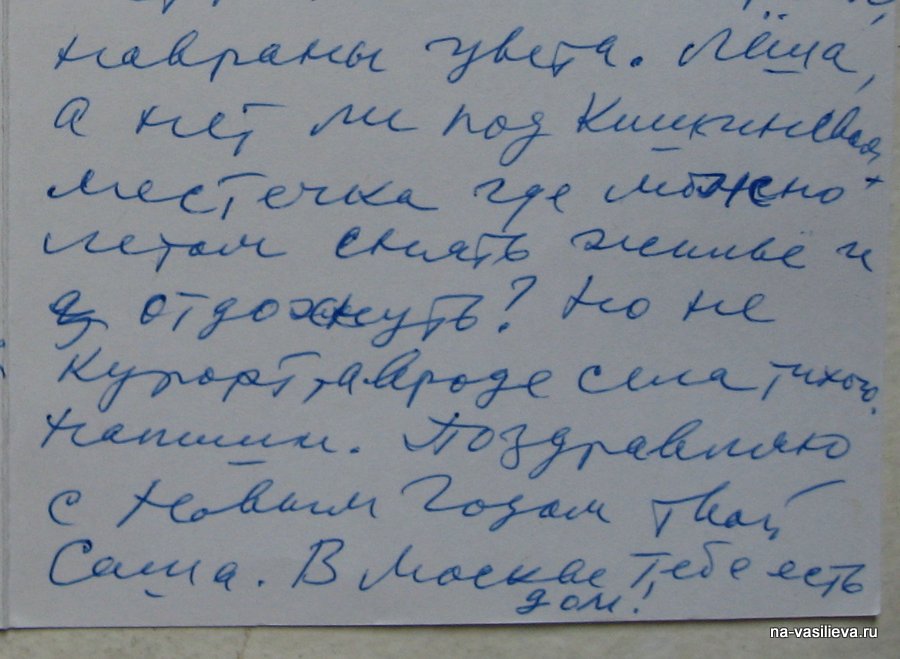 навраны цвета. Лёша,
а нет ли под Кишинёвом
местечка где можно
летом снять жильё и
отдохнуть? Но не
курорт, а вроде села тихого.
Напиши. Поздравляю
с Новым Годом твой
Саша. В Москве тебе есть
дом!
na-vasilieva.ru